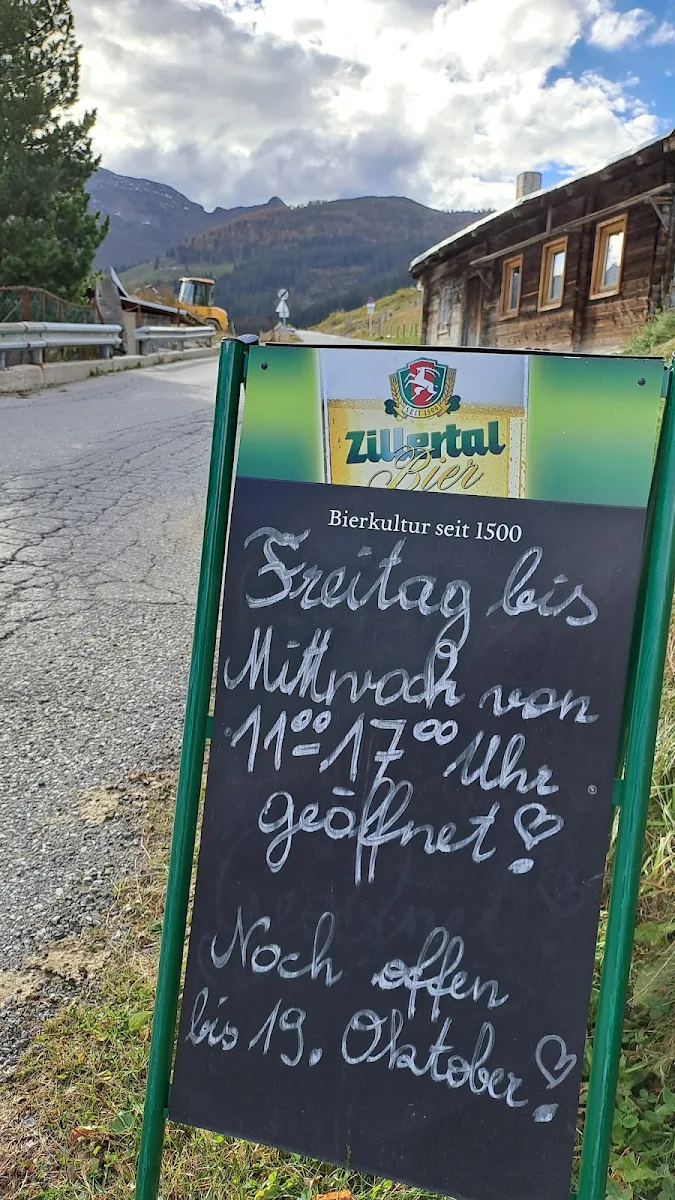 SEIT 1500
Zillertal
Bier
Bierkultur seit 1500
Freitag bis
Mittwoch von
11⁰⁰ - 17⁰⁰ Uhr
geöffnet!
Noch offen
bis 19. Oktober!